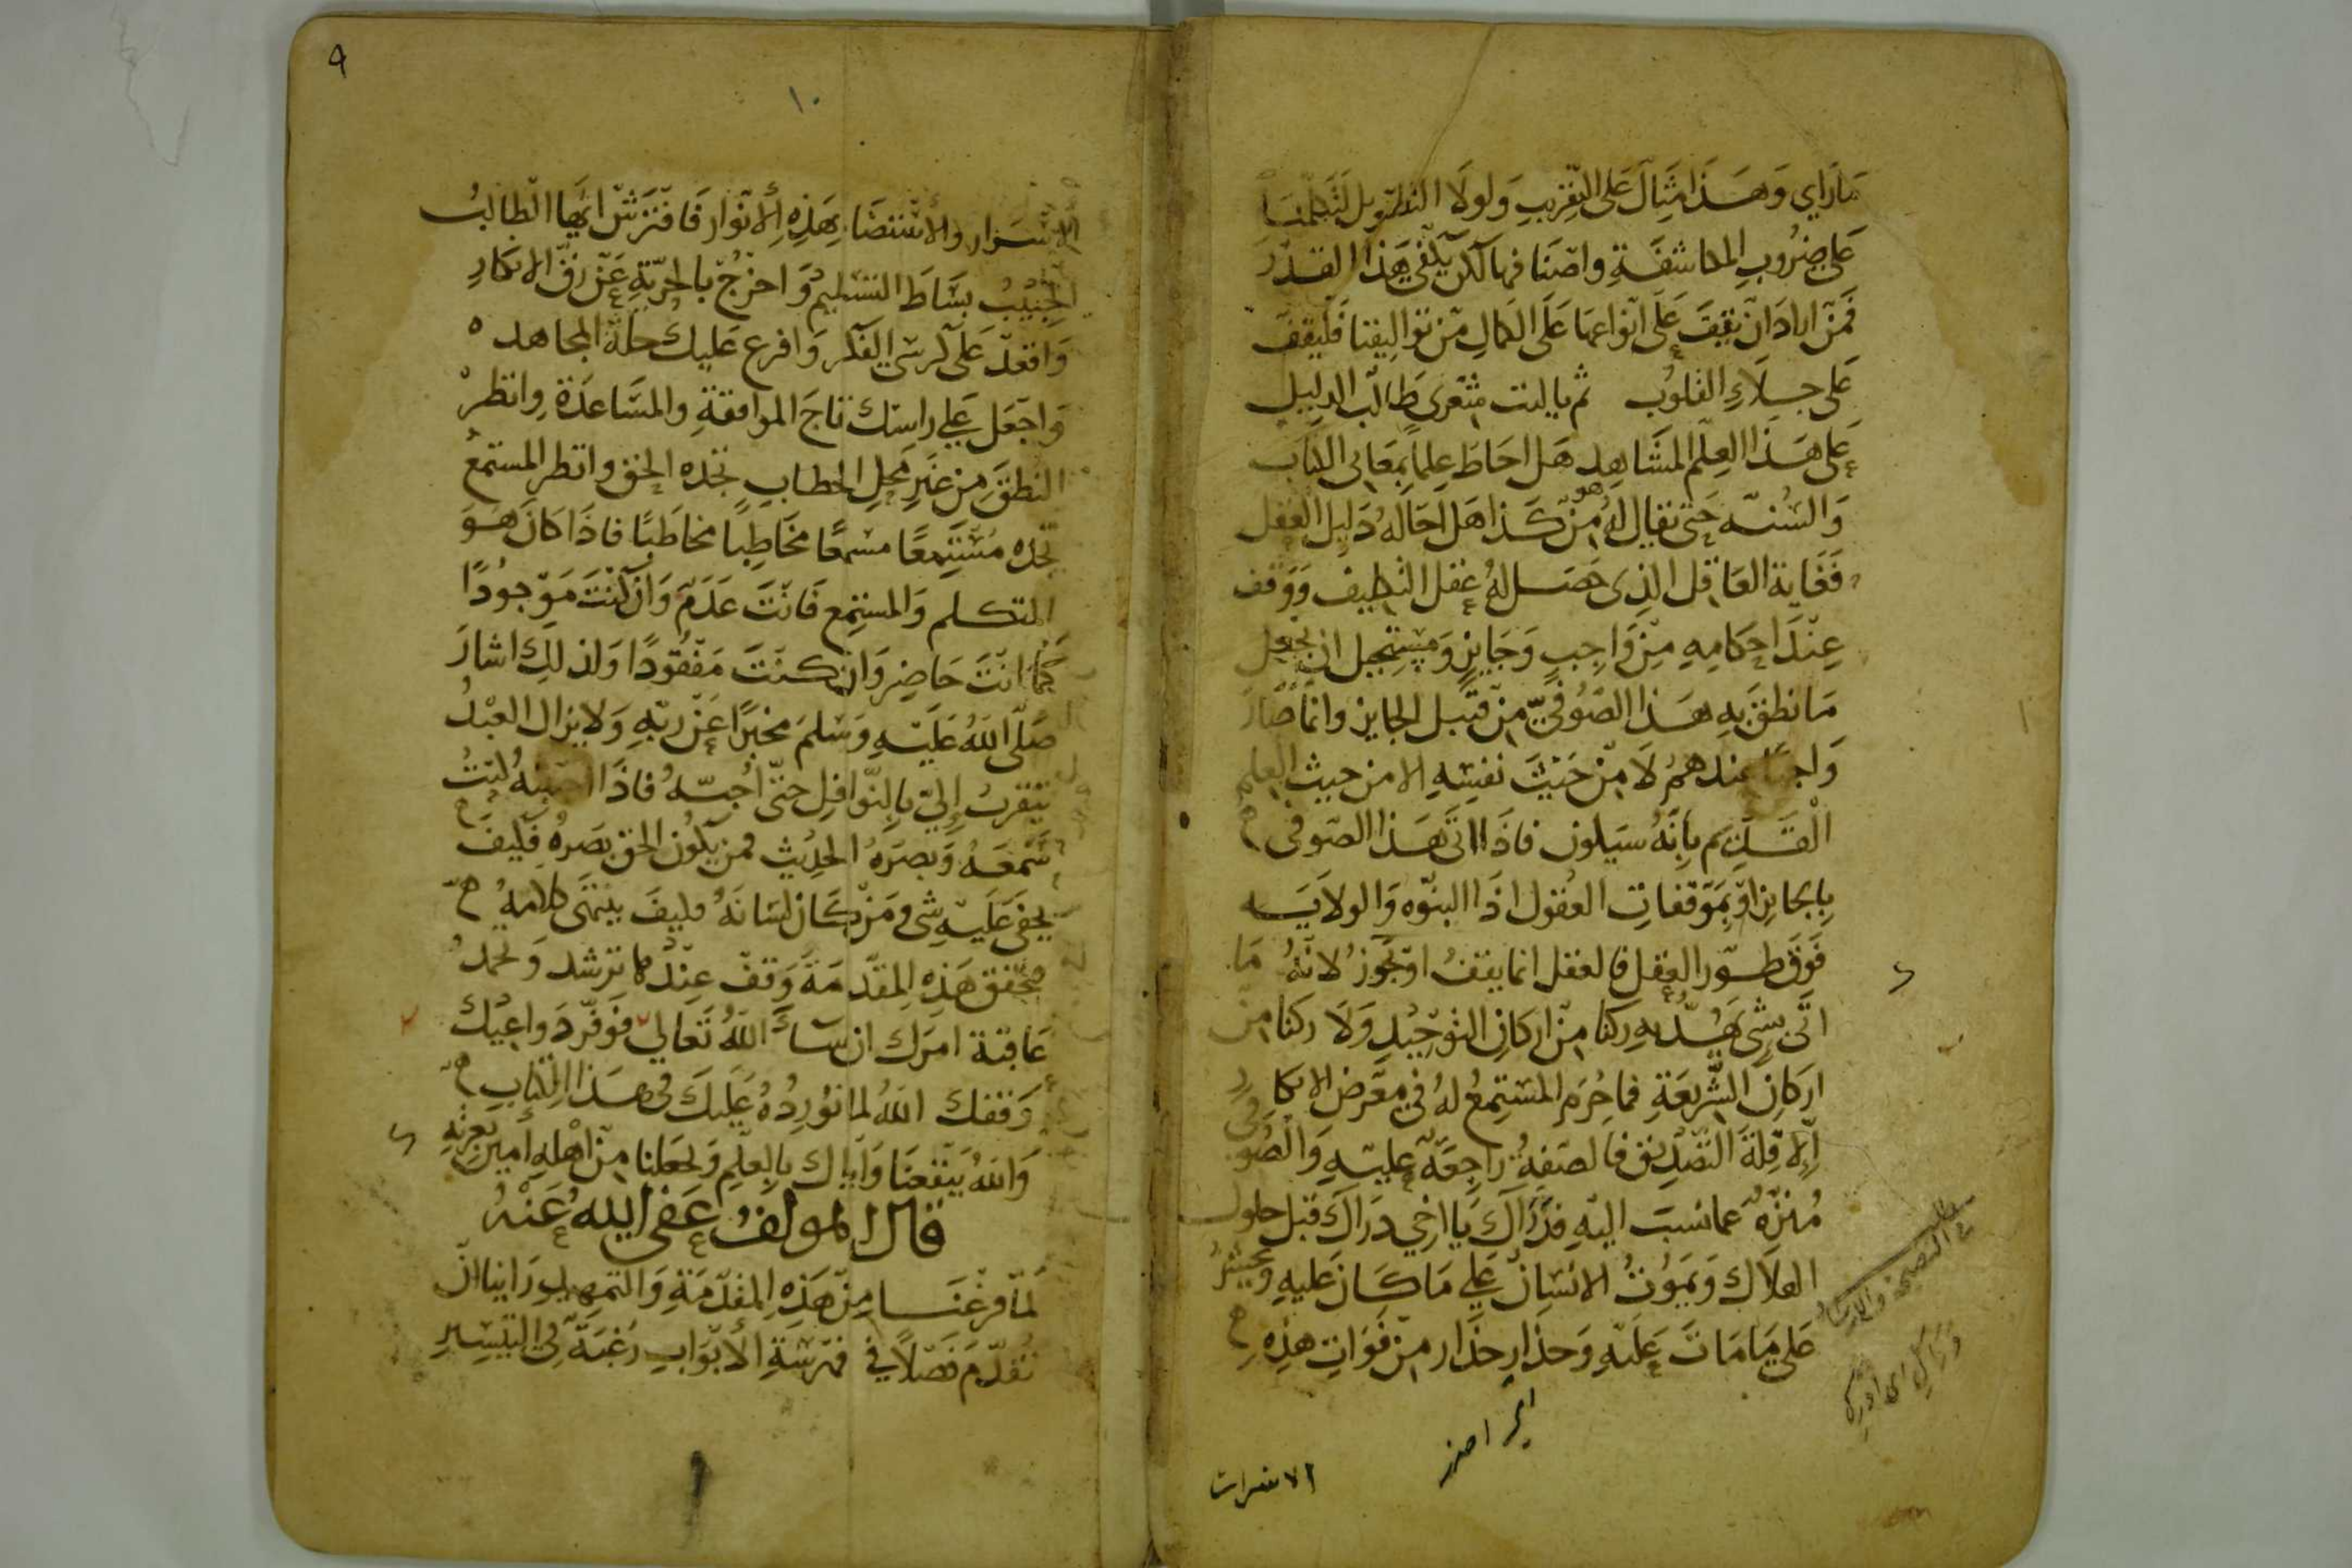 ما رأي وَهَذا مِثَال عَلى التقريب وَلولا التطويل لتكلمنا
على ضروب المكاشفة واصنافها لكن يكفي هذا القدر
فمن اراد ان يقف على انواعها على الكمال من تواليفنا فليقف
على جلاءِ القلوب ثم يا ليت شعرى طالب الدليل
على هَذا العِلم المشاهد هل احاط علما بمعاني الكتاب
والسنة حتى يقال له هو من كذا هل احاله دليل العقل
فغاية العاقل الذى حصل له عقل التكليف ووقف
عند احكامه من واجب وجايز ومستحيل ان يجعل
ما نطق به هذا الصوفي من قبيل الجايز وانما صار
واجبا عندهم لا من حيث نفسه الا من حيث العلم
القديم بانه سيكون فاذا اتى هذا الصوفى
بالجايز او بموقفات العقول اذا النبوه والولايه
فوق طور العقل فالعقل انما يقف او يجوز لانه ما
اتى بشي يهد به ركنا من اركان التوحيد ولا ركنا من
اركان الشريعة فما حرم المستمع له في معرض الانكار
الا قلة التصديق فالصفة راجعة عليه والصوفي
منزه عما نسب اليه فدراك يا اخي دراك قبل حلول
الهلاك ويموت الانسان على ما كان عليه ويحشر
على ما مات عليه وحذار حذار من فوات هذه
الاسرار والاستضاء بهذه الانوار فافترش ايها الطالب
الحبيب بساط التسليم واخرج بالحرية عن رق الانكار
واقعد على كرسي الفكر وافرع عليك حلة المجاهده
واجعل على راسك تاج الموافقة والمساعدة وانظر
النطق من غير محل الخطاب تجده الحق وانظر المستمع
تجده مستمعًا مسمعًا مخاطِبا مخاطَبًا فاذا كان هو
المتكلم والمستمع فانت عدم وان كنت موجودًا
كما انت حاضر وان كنت مفقودًا ولذلك اشار
صلى الله عليه وسلم مخبرًا عن ربه ولا يزال العبد
يتقرب إلي بالنوافل حتى أحبه فاذا احببته كنت
سمعه وبصره الحديث فمن يكون الحق بصره فكيف
يخفى عليه شى ومن كان لسانه فكيف ينتهى كلامه
فتحقق هذه المقدمة وقف عندها ترشد وتحمد
عاقبة امرك ان شاء الله تعالى
وفقك الله لما نورده عليك في هذا الكتاب
والله ينفعنا واياك بالعلم ويجعلنا من اهله امين بعزته
قال المولف عفى الله عنه
لما فرغنا من هذه المقدمة والتمهيد راينا ان
نقدم فصلاً في فهرسة الابواب رغبة في التيسير
٩
١٠